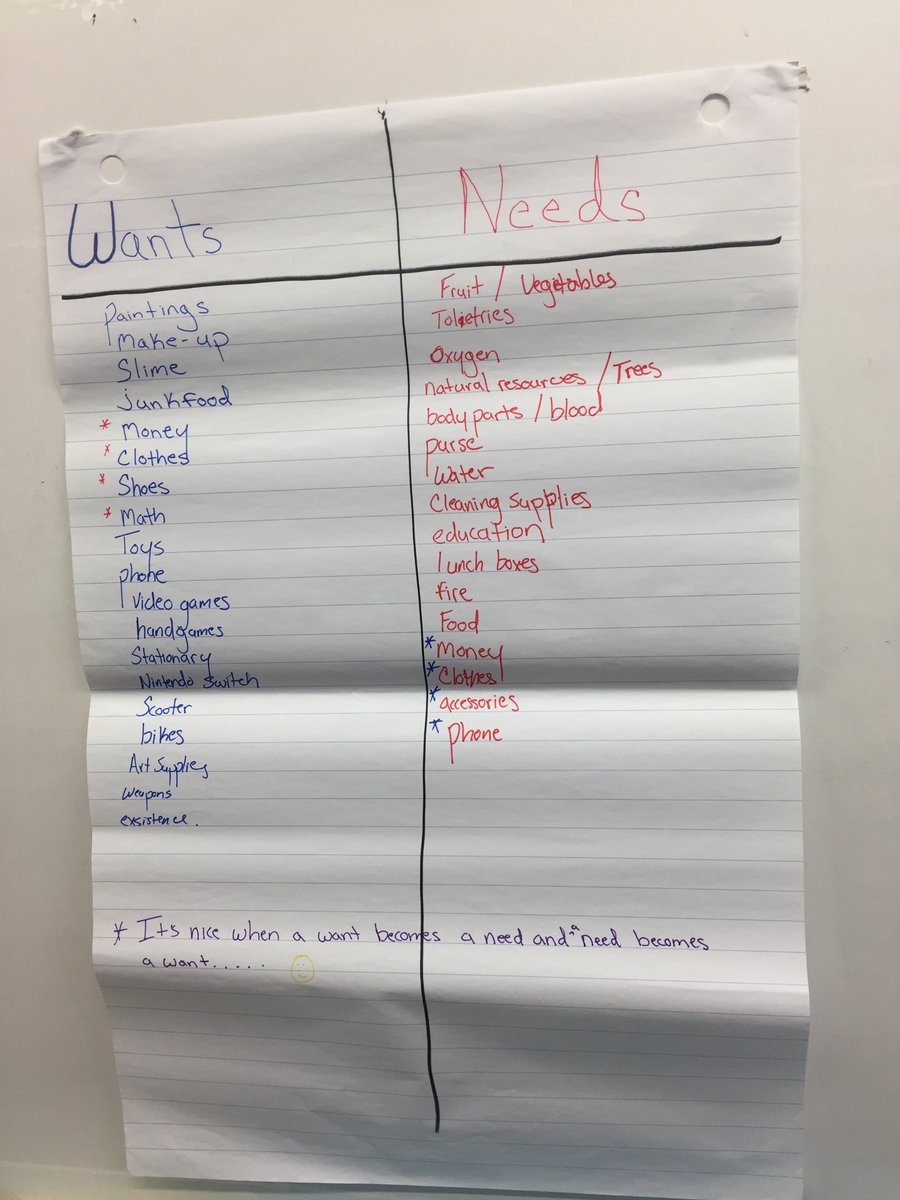 Wants
Paintings
Make-up
Slime
junkfood
* Money
* Clothes
* Shoes
* Math
Toys
phone
Video games
handgames
Stationary
Nintendo Switch
Scooter
bikes
Art Supplies
weapons
exsistence.
Needs
Fruit / Vegetables
Tolietries
Oxygen
natural resources / Trees
body parts / blood
purse
Water
Cleaning Supplies
education
lunch boxes
fire
Food
* Money
* Clothes
* accessories
* phone
* It's nice when a want becomes a need and ^a need becomes
a want.....